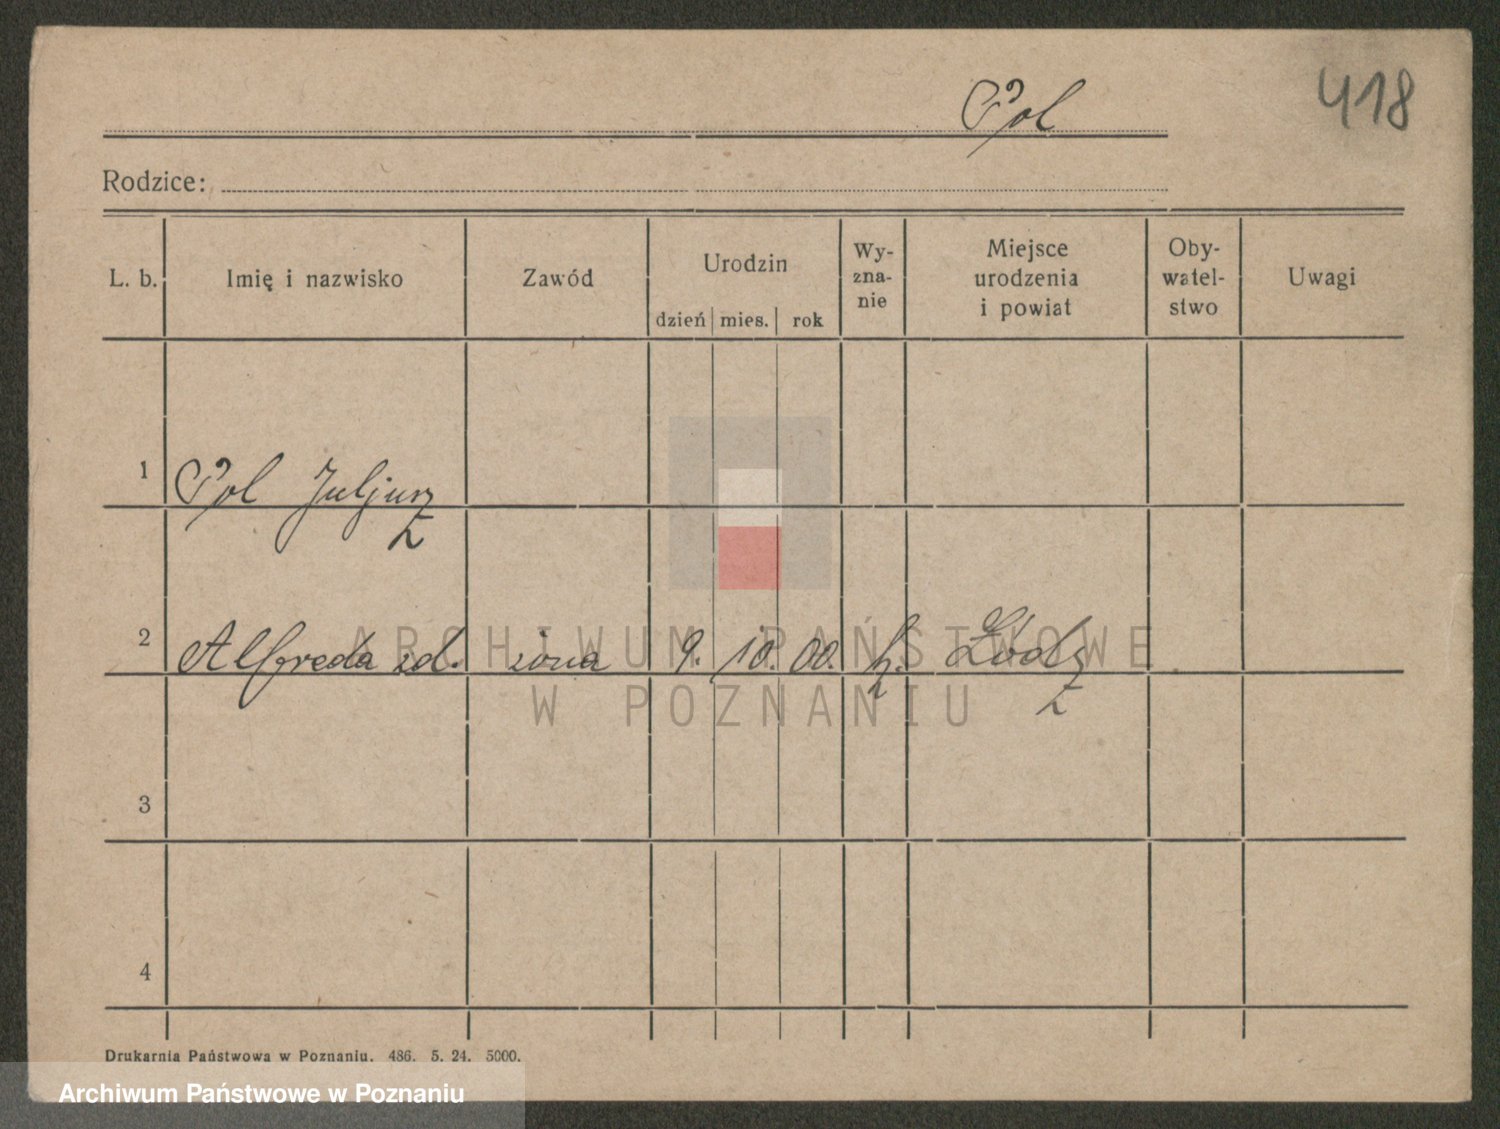 Pol 418
Rodzice:
L. b. Imię i nazwisko Zawód Urodzin dzień mies. rok Wy-zna-nie Miejsce urodzenia i powiat Oby-watel-stwo Uwagi
1 Pol Juljusz
2 Alfreda zd. żona 9. 10. 00. k. Łódź
3
4
Drukarnia Państwowa w Poznaniu. 486. 5. 24. 5000.
ARCHIWUM PAŃSTWOWE
W POZNANIU
Archiwum Państwowe w Poznaniu